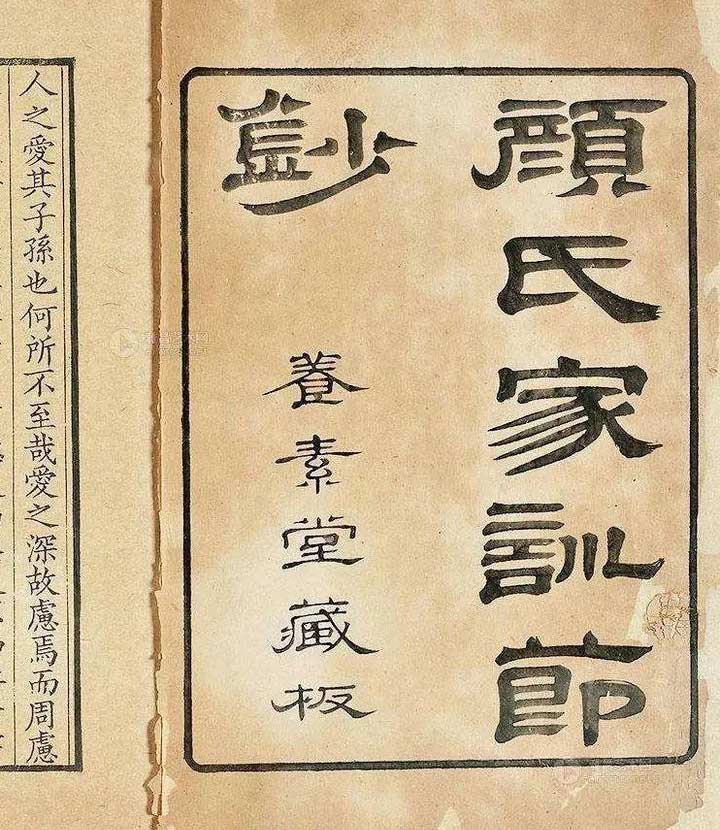 顏氏家訓節
鈔
養素堂藏板
人之愛其子孫也何所不至哉愛之深故慮焉而周慮